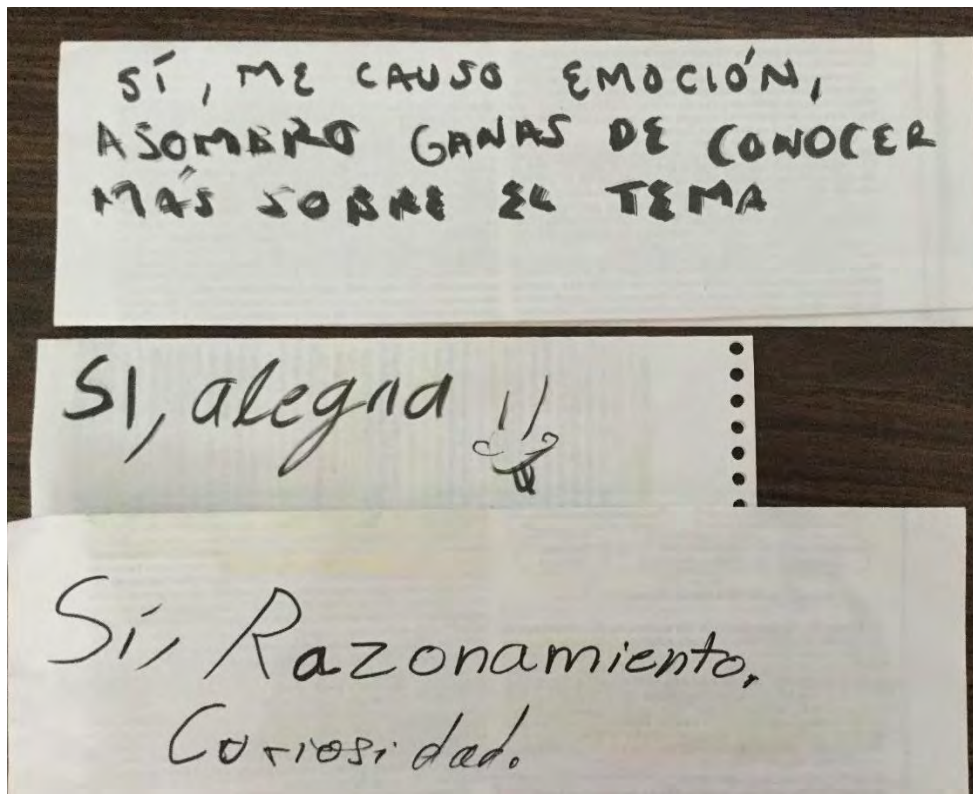 SÍ, ME CAUSO EMOCIÓN,
ASOMBRO GANAS DE CONOCER
MÁS SOBRE EL TEMA
SI, alegria
Sí, Razonamiento,
Curiosidad.